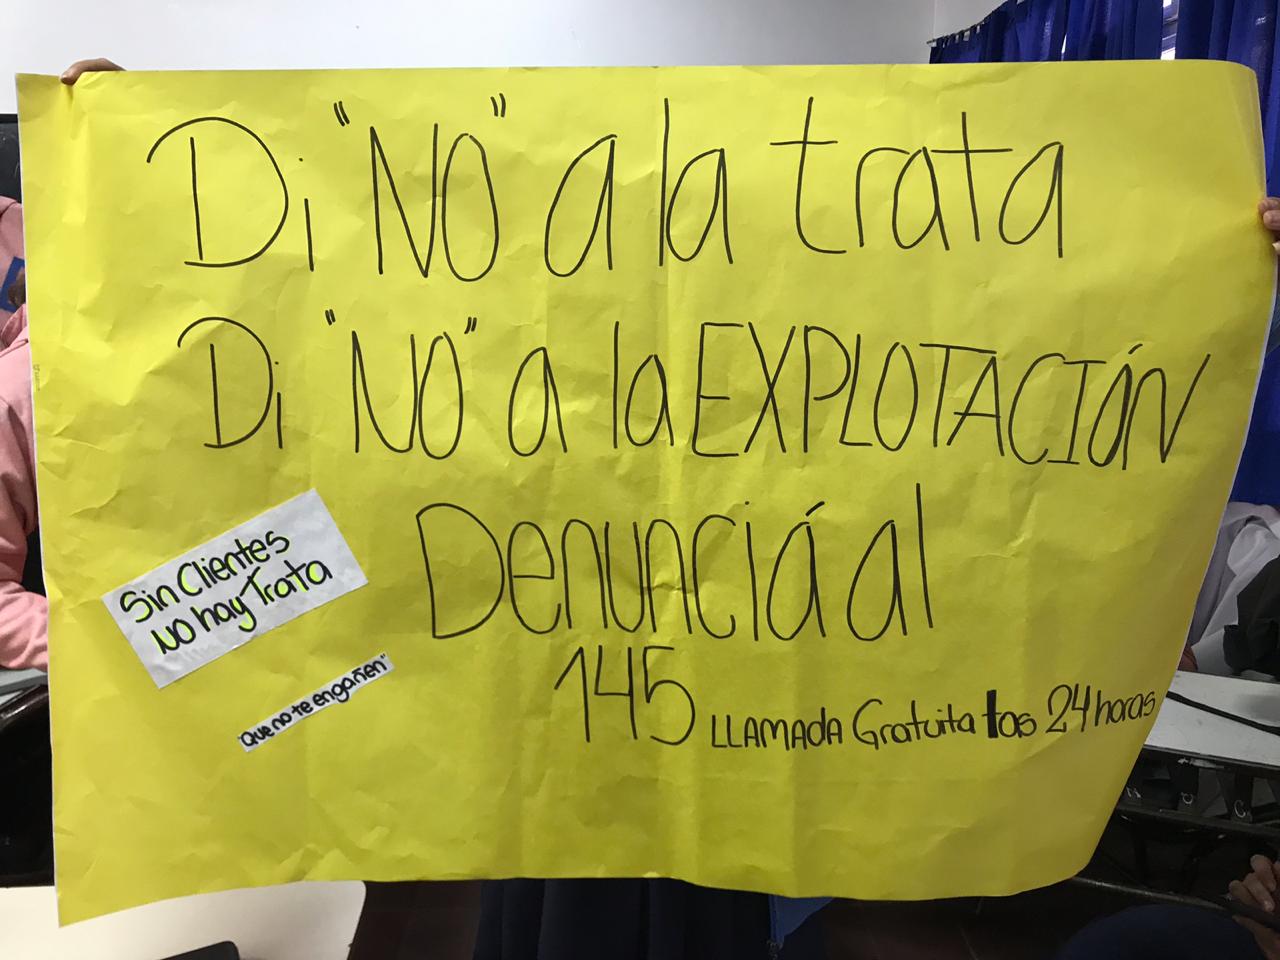 Di "NO" a la trata
Di "NO" a la EXPLOTACIÓN
Denunciá al
145 LLAMADA Gratuita las 24 horas
Sin Clientes
NO hay Trata
Que no te engañen"